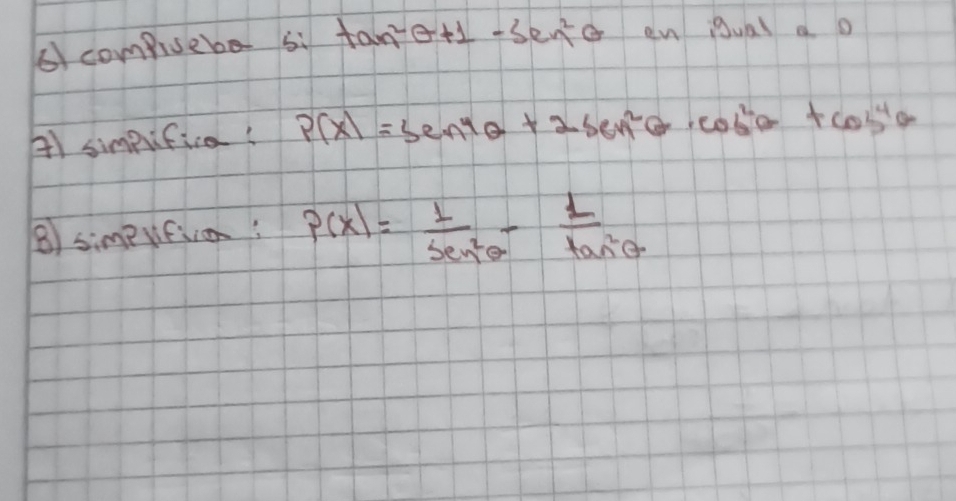 6) comprueba si tan²θ+1 -Sen²θ en igual a 0
7) simplifica: P(x) = sen⁴θ + 2 sen²θ · cos²θ + cos⁴θ
8) simplifica: P(x) = 1/sen²θ - 1/tan²θ